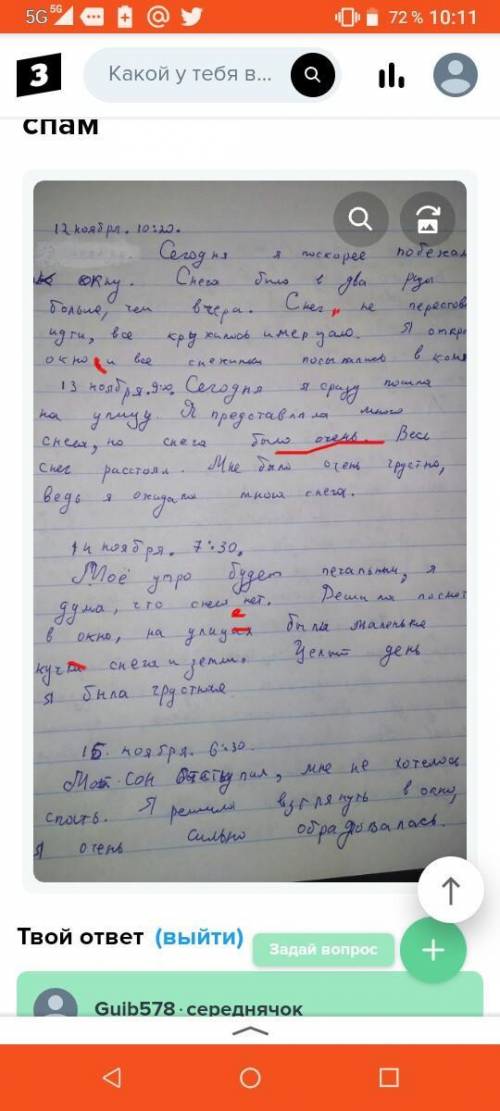 5G 5G 72 % 10:11
З Какой у тебя в...
спам
12 ноября. 10:20.
Сегодня я поскорее побежал
к окну. Снега было в два разы
больше, чем вчера. Снег, не перестов
идти, все кружилось и мерцало. Я откр
окно, и все снежинки посыпались в комн
13 ноября. Сегодня я сразу пошла
на улицу. Я представляла много
снега, но снега было очень. Весь
снег расстоял. Мне было очень грустно,
ведь я ожидала много снега.
14 ноября. 7:30.
Моё утро будет печальным, я
дума, что снега нет. Решила посмот
в окно, на улице была маленька
кучка снега и земли. Целый день
Я была грустная
15 ноября. 6:30.
Мой сон отступил, мне не хотелось
спать. Я решила взглянуть в окно,
Я очень сильно обрадовалась.
Твой ответ (выйти)
Задай вопрос
Guib578 · середнячок